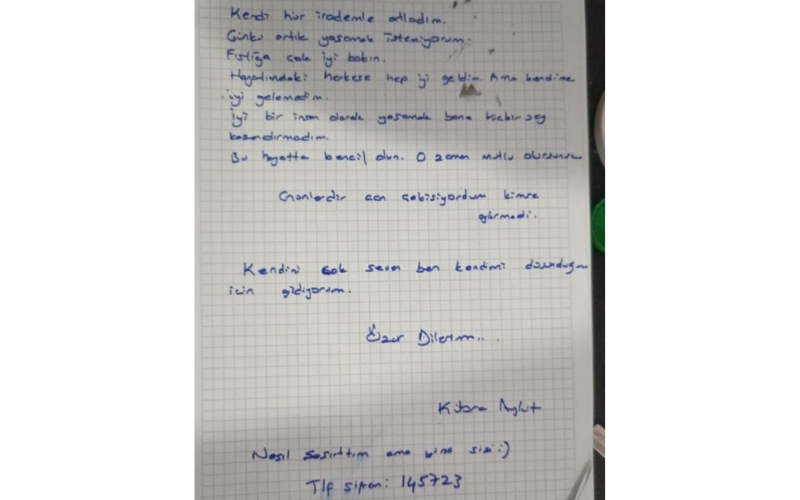 Kendi hür irademle atladım.
Çünkü artık yaşamak istemiyorum.
Fıstığa çok iyi bakın.
Hayatımdaki herkese hep iyi geldim Ama kendime
iyi gelemedim.
İyi bir insan olarak yaşamak bana hiçbir şey
kazandırmadım.
Bu hayatta bencil olun. O zaman mutlu olursunuz
Günlerdir can çekişiyordum kimse
görmedi.
Kendini çok seven ben kendimi düşündüğüm
için gidiyorum.
Özür Dilerim..
Kübra Aykut
Nasıl şaşırttım ama yine sizi :)
Tlf şifrem: 145723